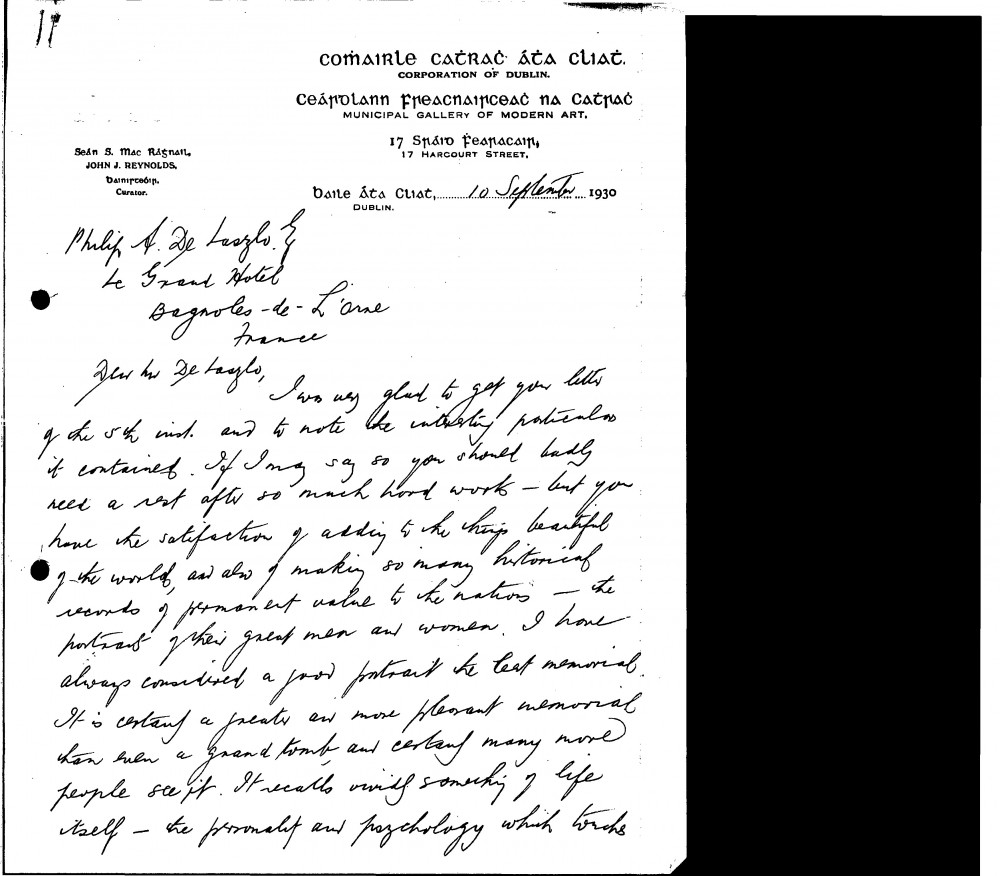 Coṁairle Caṫraċ Áṫa Cliaṫ.
CORPORATION OF DUBLIN.
Ceárdlann Nreacnairceaċ na Caṫraċ
MUNICIPAL GALLERY OF MODERN ART,
17 Sráid Ḟearacair,
17 HARCOURT STREET,
Seán S. Mac Rágnaill,
JOHN J. REYNOLDS,
Curator.
Baile Áṫa Cliaṫ, 10 September 1930
DUBLIN.
Philip A. De Laszlo. Esq
Le Grand Hotel
Bagnoles-de-L'Orne
France
Dear Mr De Laszlo,
I was very glad to get your letter
of the 5th inst. and to note the interesting particulars
it contained. If I may say so you should badly
need a rest after so much hard work – but you
have the satifaction of adding to the things beautiful
of the world, and also of making so many historical
records of permanent value to the nations – the
portraits of their great men and women. I have
always considered a good portrait the best memorial.
It is certainly a greater and more pleasant memorial
than even a grand tomb, and certainly many more
people see it. It recalls vividly something of life
itself – the personality and psychology which touches